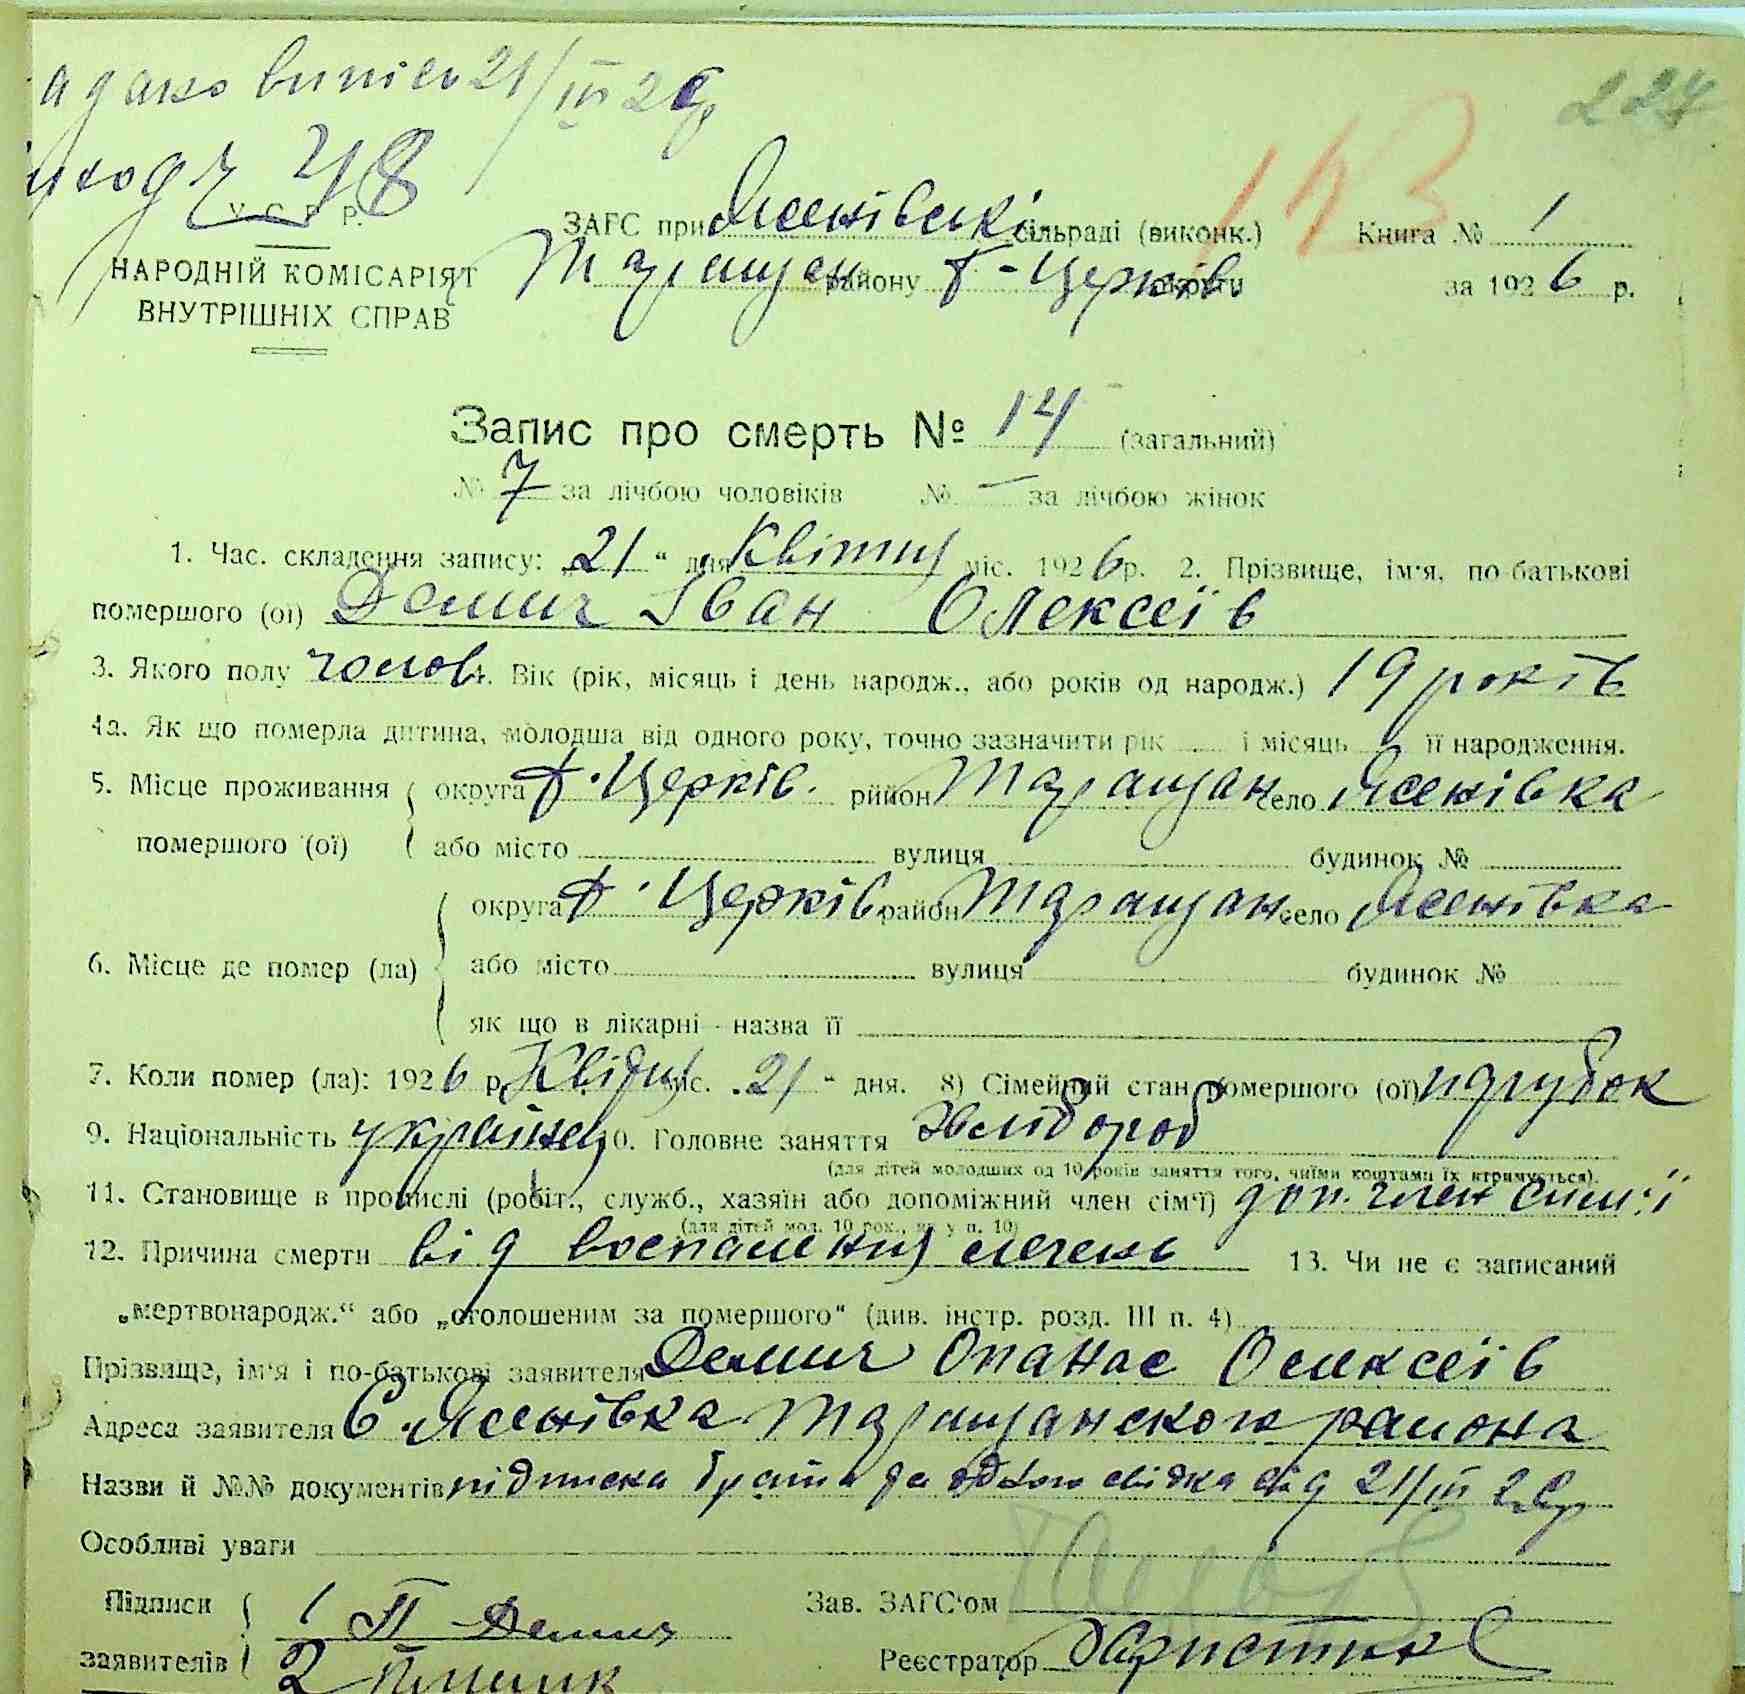 224
У.С.Р.Р.
НАРОДНІЙ КОМІСАРІЯТ
ВНУТРІШНІХ СПРАВ
ЗАГС при Ясенівські сільраді (виконк.) Книга № 1
Таращан району Б-Церків округи за 1926 р.
Запис про смерть № 14 (загальний)
№ 7 за лічбою чоловіків № — за лічбою жінок
1. Час. складення запису: „21“ дня Квітня міс. 1926 р. 2. Прізвище, ім'я, по-батькові
помершого (ої) Демич Іван Олексеїв
3. Якого полу чолов. 4. Вік (рік, місяць і день народж., або років од народж.) 19 років
4а. Як що померла дитина, молодша від одного року, точно зазначити рік і місяць її народження.
5. Місце проживання округа Б.Церків. район Таращан село Ясенівка
помершого (ої) або місто вулиця будинок №
округа Б.Церків район Таращан село Ясенівка
6. Місце де помер (ла) або місто вулиця будинок №
як що в лікарні - назва її
7. Коли помер (ла): 1926 р. міс. „21“ дня. 8) Сімейний стан помершого (ої) парубок
9. Національність українец 10. Головне заняття хлібороб
(для дітей молодших од 10 років заняття того, чиїми коштами їх втримується).
11. Становище в промислі (робіт., служб., хазяїн або допоміжний член сім'ї) доп. член сим'ї
(для дітей мол. 10 рок., як у п. 10)
12. Причина смерти від воспаления легень 13. Чи не є записаний
„мертвонародж.“ або „оголошеним за помершого“ (див. інстр. розд. III п. 4)
Прізвище, ім'я і по-батькові заявителя Демич Опанас Олексеїв
Адреса заявителя С. Ясенівка Таращанского района
Назви й №№ документів підписка брата та свідка від 21/IV 26р
Особливі уваги
Підписи 1 П Демич Зав. ЗАГС'ом
заявителів 2 Реєстратор